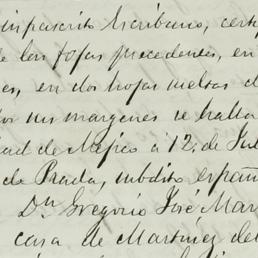 inpascrito Escribano, certi
e las fojas precedentes, en
es, en dos hojas utiles d
or sus margenes se halla
dad de Mejico á 12. de Ju
de Prada, subdito españ
Dn Gregorio José Mar
casa de Martinez del